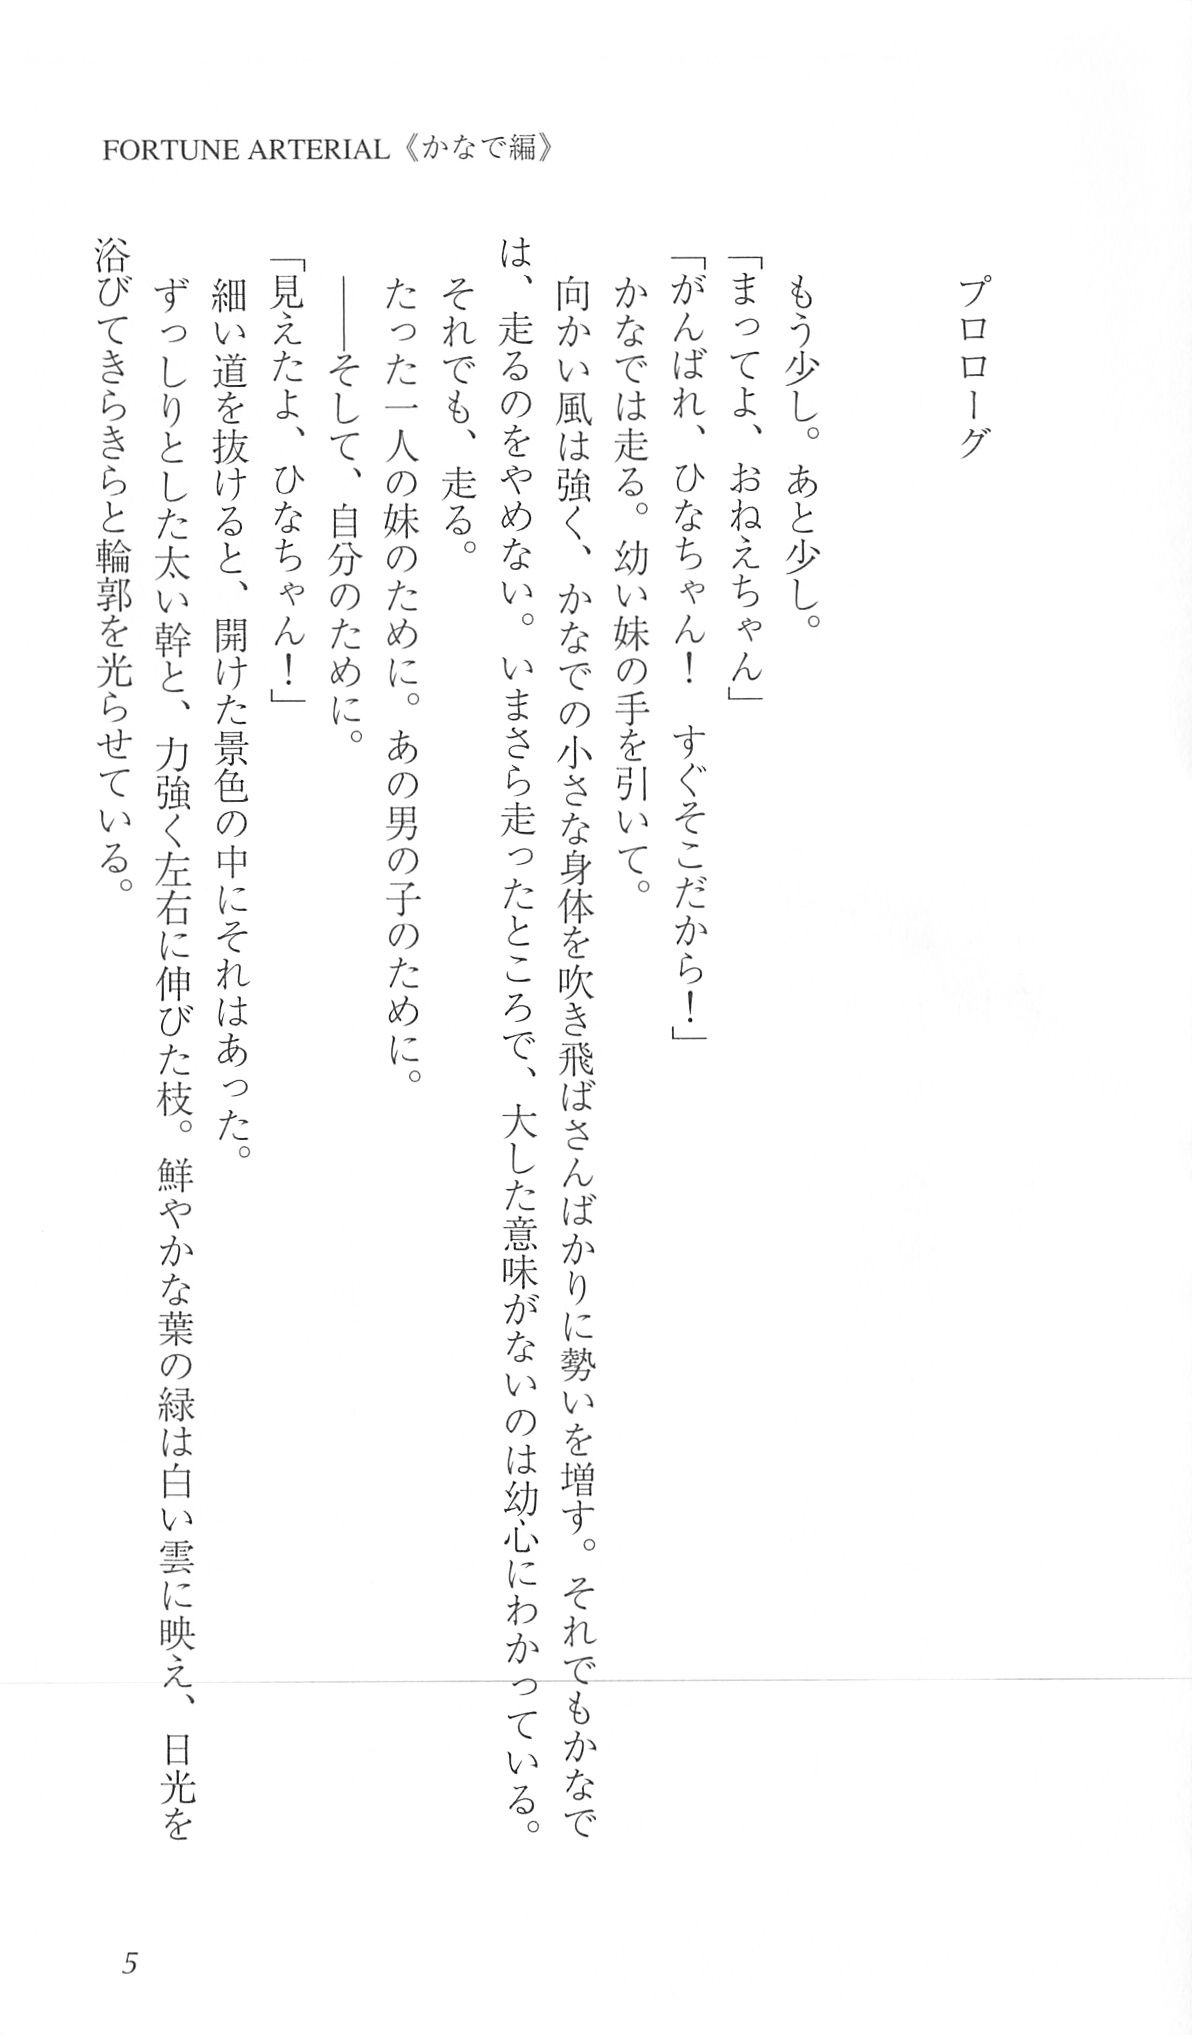 FORTUNE ARTERIAL《かなで編》
プロローグ
もう少し。あと少し。
「まってよ、おねえちゃん」
「がんばれ、ひなちゃん！　すぐそこだから！」
かなでは走る。幼い妹の手を引いて。
向かい風は強く、かなでの小さな身体を吹き飛ばさんばかりに勢いを増す。それでもかなで
は、走るのをやめない。いまさら走ったところで、大した意味がないのは幼心にわかっている。
それでも、走る。
たった一人の妹のために。あの男の子のために。
――そして、自分のために。
「見えたよ、ひなちゃん！」
細い道を抜けると、開けた景色の中にそれはあった。
ずっしりとした太い幹と、力強く左右に伸びた枝。鮮やかな葉の緑は白い雲に映え、日光を
浴びてきらきらと輪郭を光らせている。
5